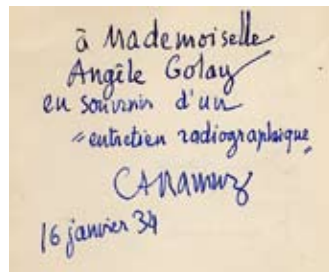 à Mademoiselle
Angèle Golay
en souvenir d'un
"entretien radiographique"
CF Ramuz
16 janvier 34